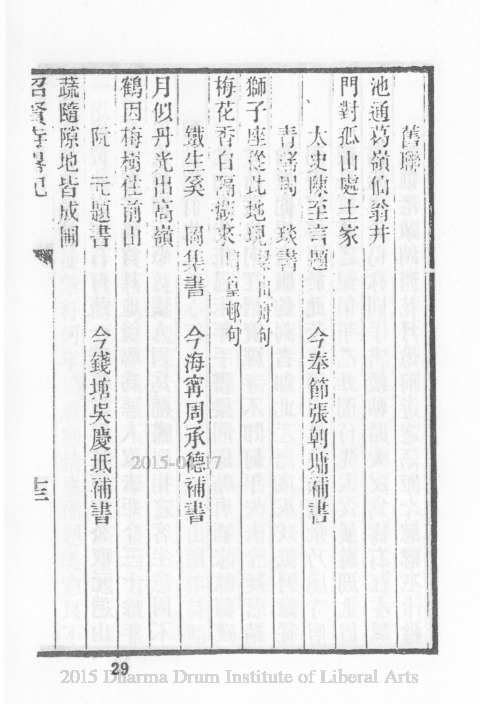 舊聯
池通葛嶺仙翁井
門對孤山處士家
太史陳至言題 今奉節張朝墉補書
青谿馬 琰書
獅子座從此地現
梅花香自隔湖來
鐵生奚 岡集書 今海寧周承德補書
月似丹光出高嶺
鶴因梅樹住前山
阮 元題書 今錢塘吳慶坻補書
蔬隨隙地皆成圃
招賢寺畧記
十三
29
2015 Dharma Drum Institute of Liberal Arts